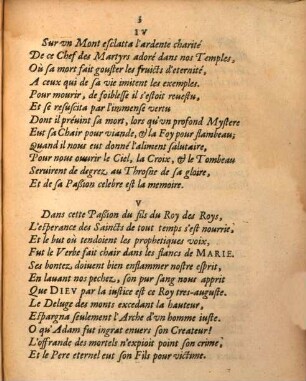 3
IV
Sur vn Mont esclatta l'ardente charité
De ce Chef des Martyrs adoré dans nos Temples,
Où sa mort fait gouster les fruicts d'eternité,
A ceux qui de sa vie imitent les exemples.
Pour mourir, de foiblesse il s'estoit reuestu,
Et se resuscita par l'immense vertu
Dont il préuint sa mort, lors qu'vn profond Mystere
Eut sa Chair pour viande, & la Foy pour flambeau;
Quand il nous eut donné l'aliment salutaire,
Pour nous ouurir le Ciel, la Croix, & le Tombeau
Seruirent de degrez au Throsne de sa gloire,
Et de sa Passion celebre est la memoire.
V
Dans cette Passion du fils du Roy des Roys,
L'esperance des Saincts de tout temps s'est nourrie,
Et le but où tendoient les prophetiques voix,
Fut le Verbe fait chair dans les flancs de MARIE.
Ses bontez doiuent bien enflammer nostre esprit,
En lauant nos pechez, son pur sang nous apprit
Que DIEV par la iustice est ce Roy tres-auguste.
Le Deluge des monts excedant la hauteur,
Espargna seulement l'Arche d'vn homme iuste.
O qu'Adam fut ingrat enuers son Createur!
L'offrande des mortels n'expioit point son crime,
Et le Pere eternel eut son Fils pour victime.